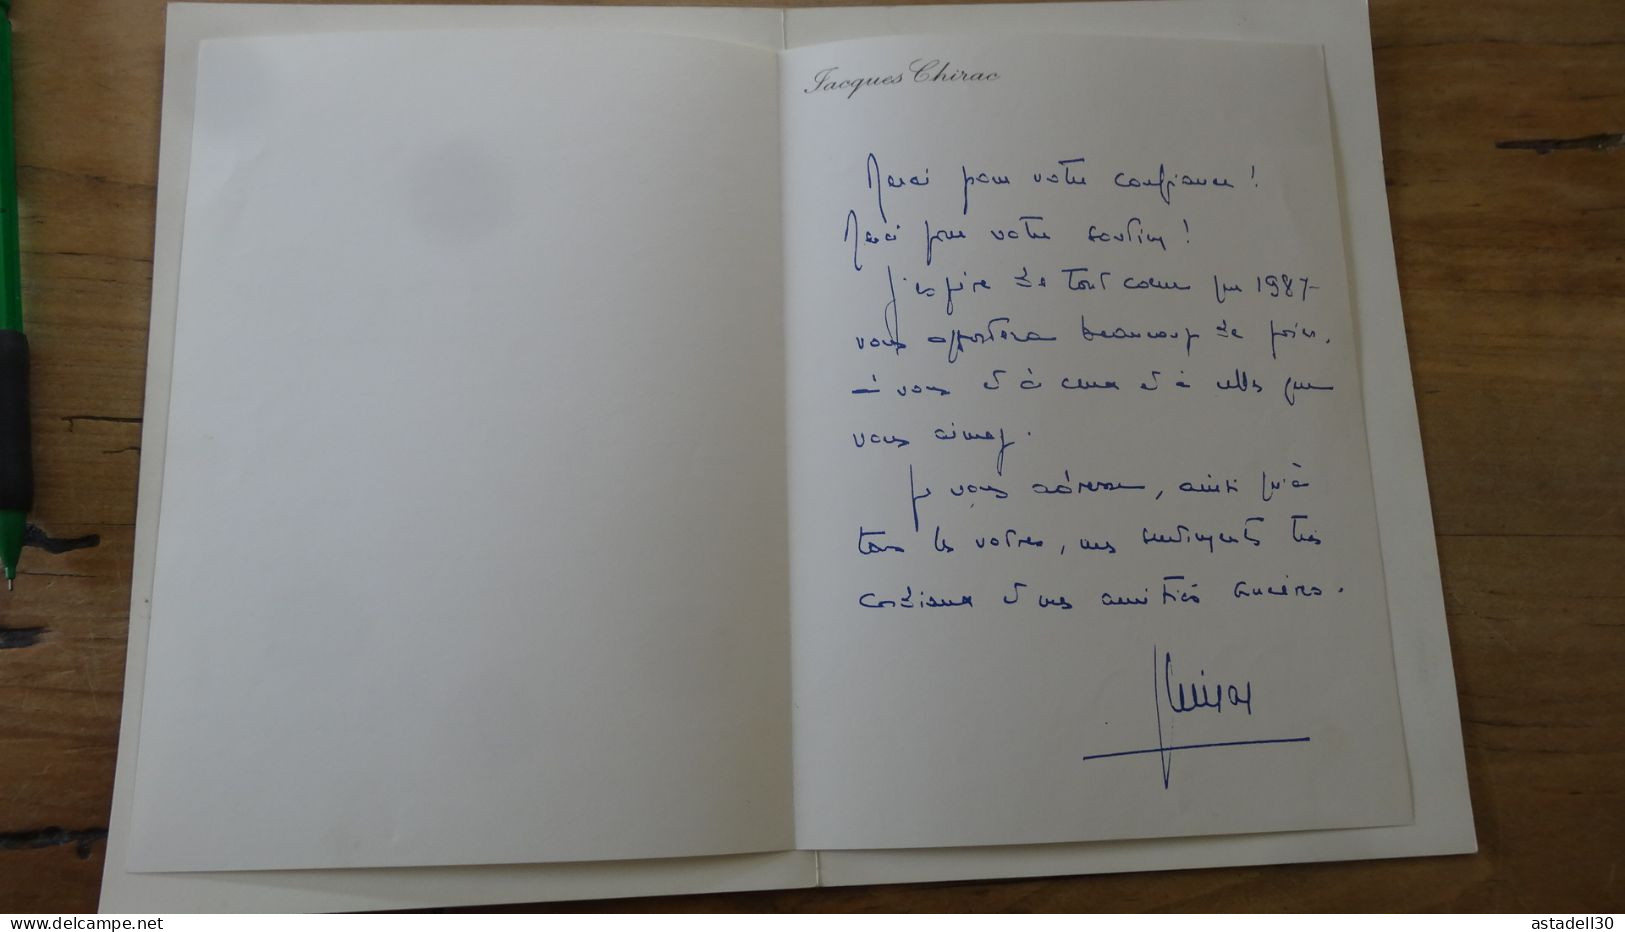 Jacques Chirac
Merci pour votre confiance !
Merci pour votre soutien !
J'espère de tout coeur que 1987
vous apportera beaucoup de joies,
à vous et à ceux et à celles que
vous aimez.
Je vous adresse, ainsi qu'à
tous les votres, mes sentiments très
cordiaux et mes amitiés sincères.
JChirac
delcampe.net
astadell30